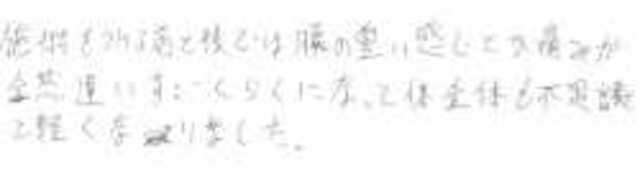 施術を受ける前と後では腰の重い感じとか痛みが
全然違いすごくらくになって体全体も不思議
と軽くなりました。